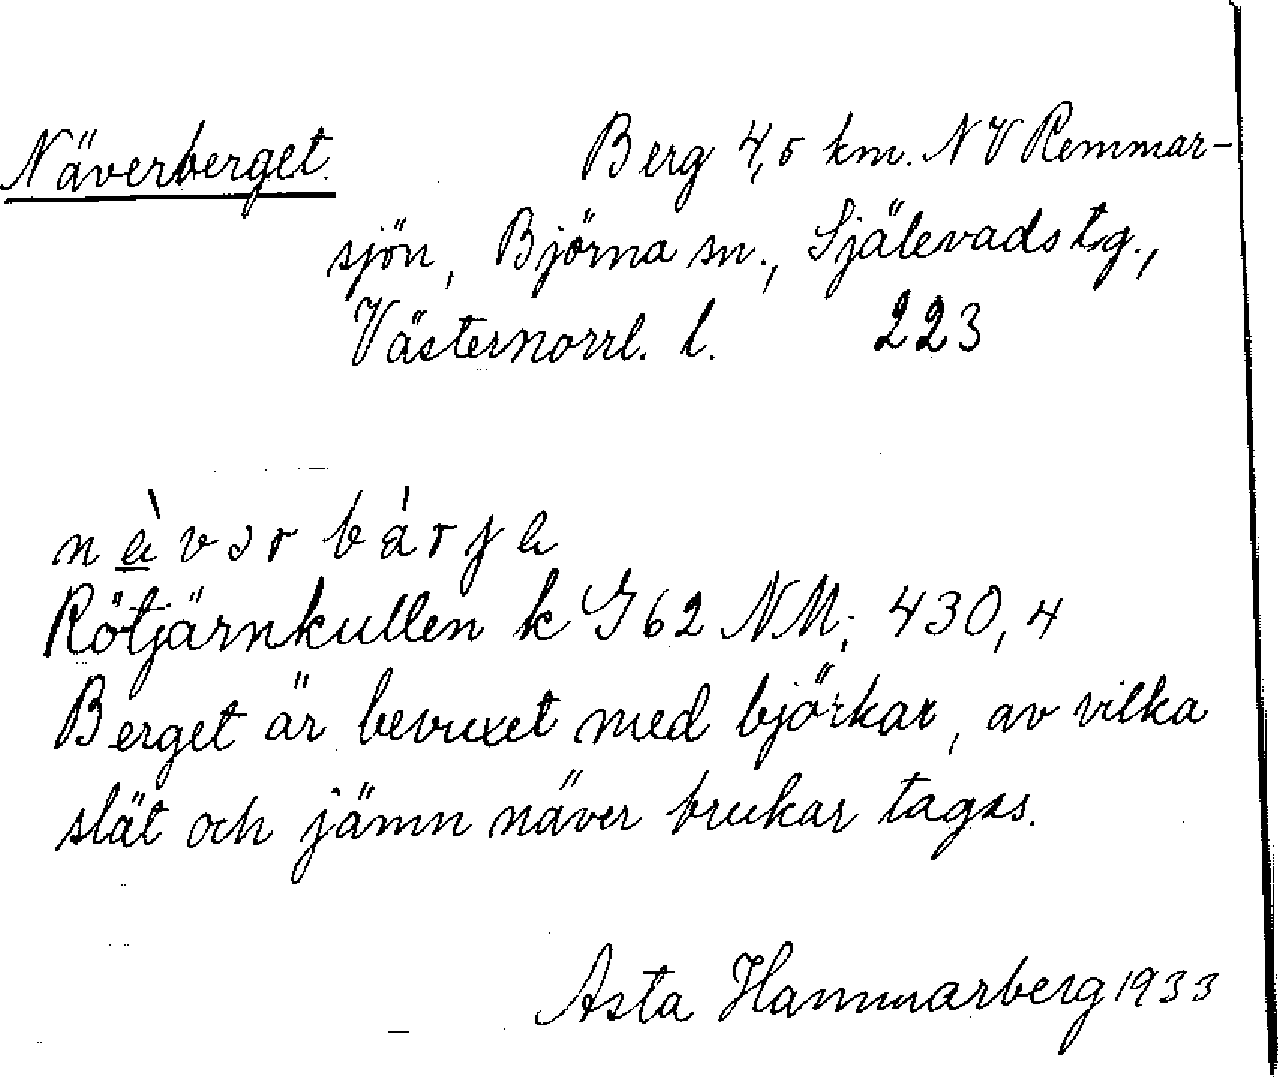 Näverberget. Berg 4,5 km. NV Remmar-
sjön, Björna sn., Själevads tg.,
Västernorrl. l. 223
Rötjärnkullen k G 62 NM; 430,4
Berget är bevuxet med björkar, av vilka
slät och jämn näver brukar tagas.
Asta Hammarberg 1933